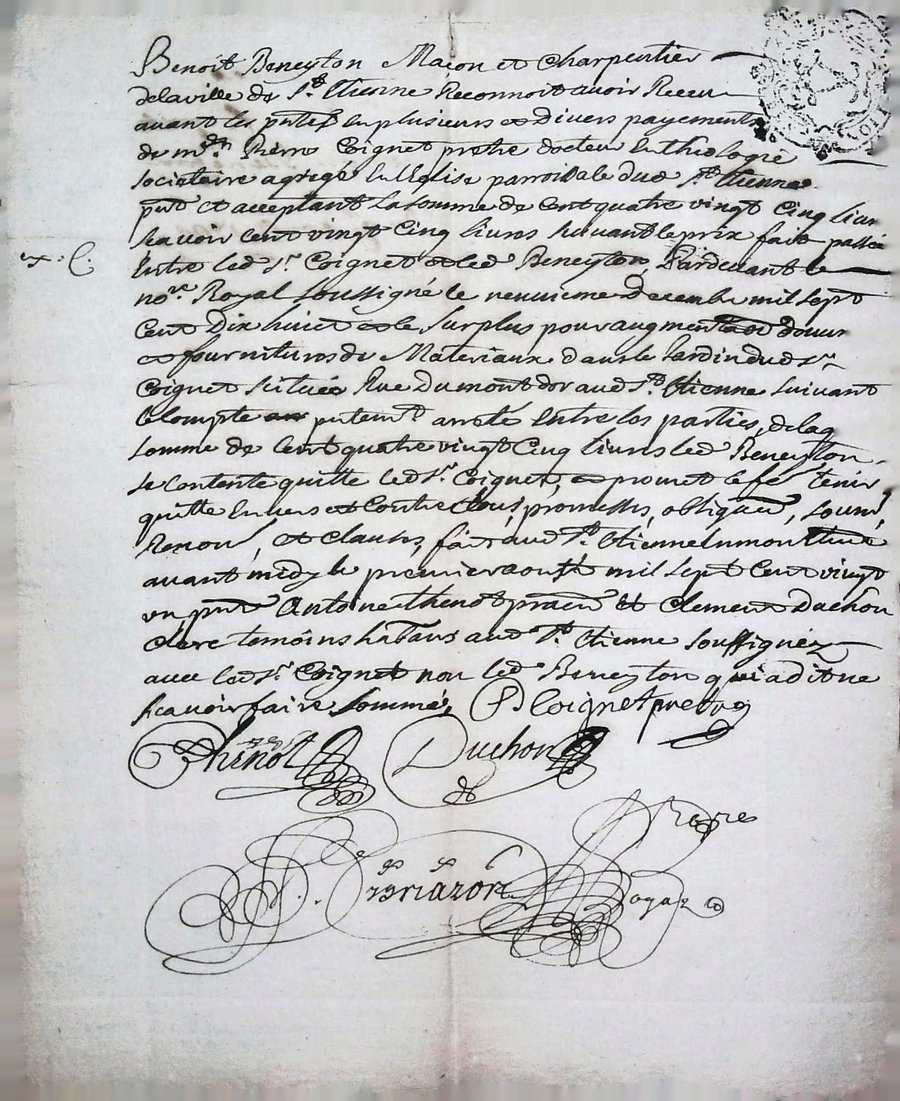 Benoit Beneyton Maçon et Charpentier
delaville de St. Etienne Reconnoit avoir Receu
avant les pntes En plusieurs et divers payements
de mre Pierre Coignet pretre docteur En theologie
societaire agregé En lEglise parroissale dud St. Etienne
pnt et acceptant La somme de Cent quatre vingt Cinq livres
scavoir Cent vingt Cinq livres suivant le prix fait passé
Entre led Sr. Coignet et led Beneyton Pardevant le
nore. Royal soussigné le neuvieme Decembre mil sept
Cent Dix huict et le surplus pour augmenta
et fournitures de Materiaux dans le Jardin dud Sr.
Coignet scituée Rue Dumontdor aud St. Etienne suivant
le Compte arreté Entre les parties, de laq
somme de Cent quatre vingt Cinq livres led Beneyton
se Contente quitte led Sr. Coignet, et promet le fe. tenir
quitte Envers et Contre tous, promesses, obligaon, soumi,
Renon, et clauses, fait aud St. Etienne En mon Etude
avant midy le premier aoust mil sept Cent vingt
un pnt Antoine thenot et Clement Duchon
Clerc temoins habitans aud St. Etienne soussignéz
avec led Sr. Coignet non led Beneyton qui a dit ne
scavoir faire sommé,
P Coignet pretre
thenot
Duchon
Royal